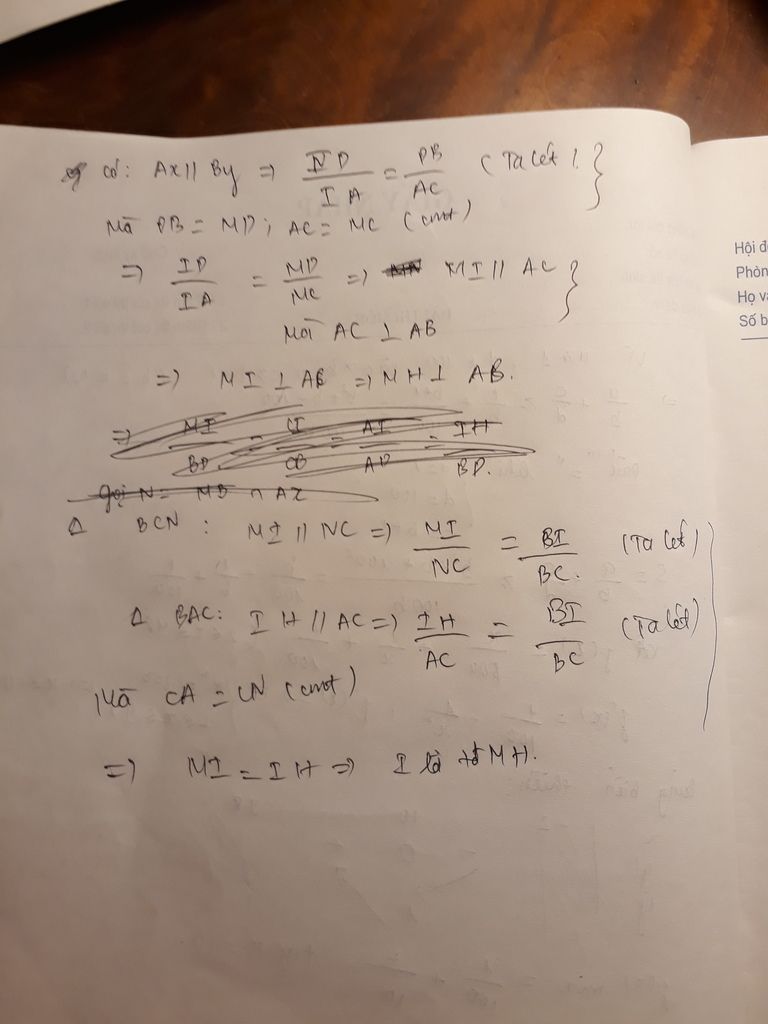 có: Ax // By => ID/IA = DB/AC (Ta lét) }
Mà DB = MD; AC = MC (cmt)
=> ID/IA = MD/MC => MI // AC }
Mà AC ⊥ AB
=> MI ⊥ AB => MH ⊥ AB.
=> MI/BD = CI/CB = AI/AD = IH/BD.
gọi N = MB ∩ Ax
Δ BCN : MI // NC => MI/NC = BI/BC. (Ta lét)
Δ BAC: IH // AC => IH/AC = BI/BC (Ta lét)
Mà CA = CN (cmt)
=> MI = IH => I là tđ MH.
Hội đ
Phòn
Họ v
Số b